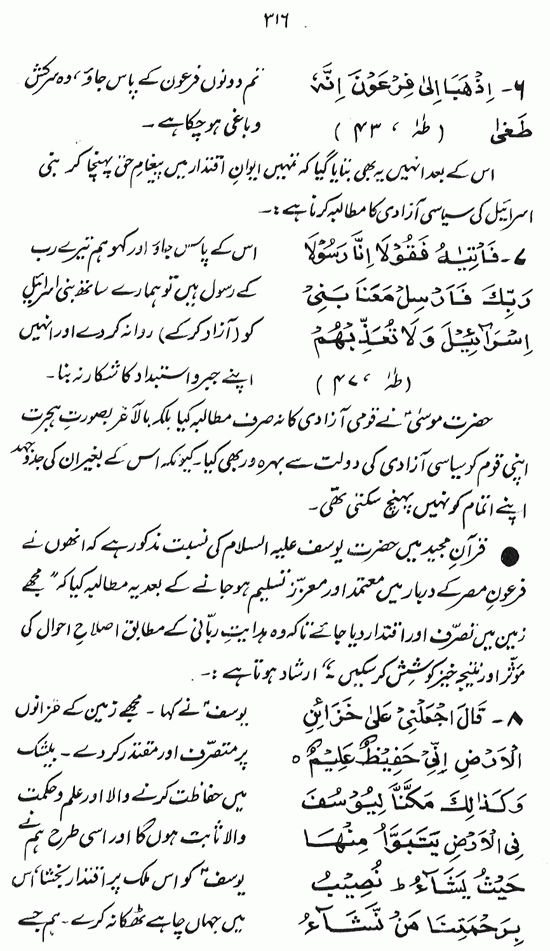 ۳۱۶
۶- اِذْهَبَا اِلىٰ فِرْعَوْنَ اِنَّهٗ
طَغىٰ (طٰہٰ ، ۴۳)
تم دونوں فرعون کے پاس جاؤ، وہ سرکش
و باغی ہو چکا ہے۔
اس کے بعد انہیں یہ بھی بتایا گیا کہ تمہیں ایوانِ اقتدار میں پیغامِ حق پہنچا کر بنی
اسرائیل کی سیاسی آزادی کا مطالبہ کرنا ہے :۔
۷- فَأْتِيٰهُ فَقُوْلَا اِنَّا رَسُوْلَا
رَبِّكَ فَاَرْسِلْ مَعَنَا بَنِيْ
اِسْرَآئِيْلَ وَلَا تُعَذِّبْهُمْ
(طٰہٰ ، ۴۷)
اس کے پاس جاؤ اور کہو ہم تیرے رب
کے رسول ہیں تو ہمارے ساتھ بنی اسرائیل
کو (آزاد کر کے) روانہ کر دے اور انہیں
اپنے جبر و استبداد کا شکار نہ بنا۔
حضرت موسیٰؑ نے قومی آزادی کا نہ صرف مطالبہ کیا بلکہ بالآخر بصورتِ ہجرت
اپنی قوم کو سیاسی آزادی کی دولت سے بہرہ ور بھی کیا۔ کیونکہ اس کے بغیر ان کی جدوجہد
اپنے اتمام کو نہیں پہنچ سکتی تھی۔
● قرآنِ مجید میں حضرت یوسف علیہ السلام کی نسبت مذکور ہے کہ انھوں نے
فرعونِ مصر کے دربار میں معتمد اور معزز تسلیم ہو جانے کے بعد یہ مطالبہ کیا کہ " مجھے
زمین میں تصرف اور اقتدار دیا جائے تاکہ وہ ہدایتِ ربانی کے مطابق اصلاحِ احوال کی
مؤثر اور نتیجہ خیز کوشش کر سکیں "، ارشاد ہوتا ہے :۔
۸- قَالَ اجْعَلْنِيْ عَلىٰ خَزَآئِنِ
الْاَرْضِ اِنِّيْ حَفِيْظٌ عَلِيْمٌ ہ
وَكَذٰلِكَ مَكَّنَّا لِيُوْسُفَ
فِى الْاَرْضِ يَتَبَوَّأُ مِنْهَا
حَيْثُ يَشَآءُ ط نُصِيْبُ
بِرَحْمَتِنَا مَنْ نَّشَآءُ
یوسفؑ نے کہا۔ مجھے زمین کے خزانوں
پر متصرف اور مقتدر کر دے۔ بیشک
میں حفاظت کرنے والا اور علم و حکمت
والا ثابت ہوں گا اور اسی طرح ہم نے
یوسفؑ کو اس ملک پر اقتدار بخشا، اس
میں جہاں چاہے ٹھکانہ کرے۔ ہم جسے